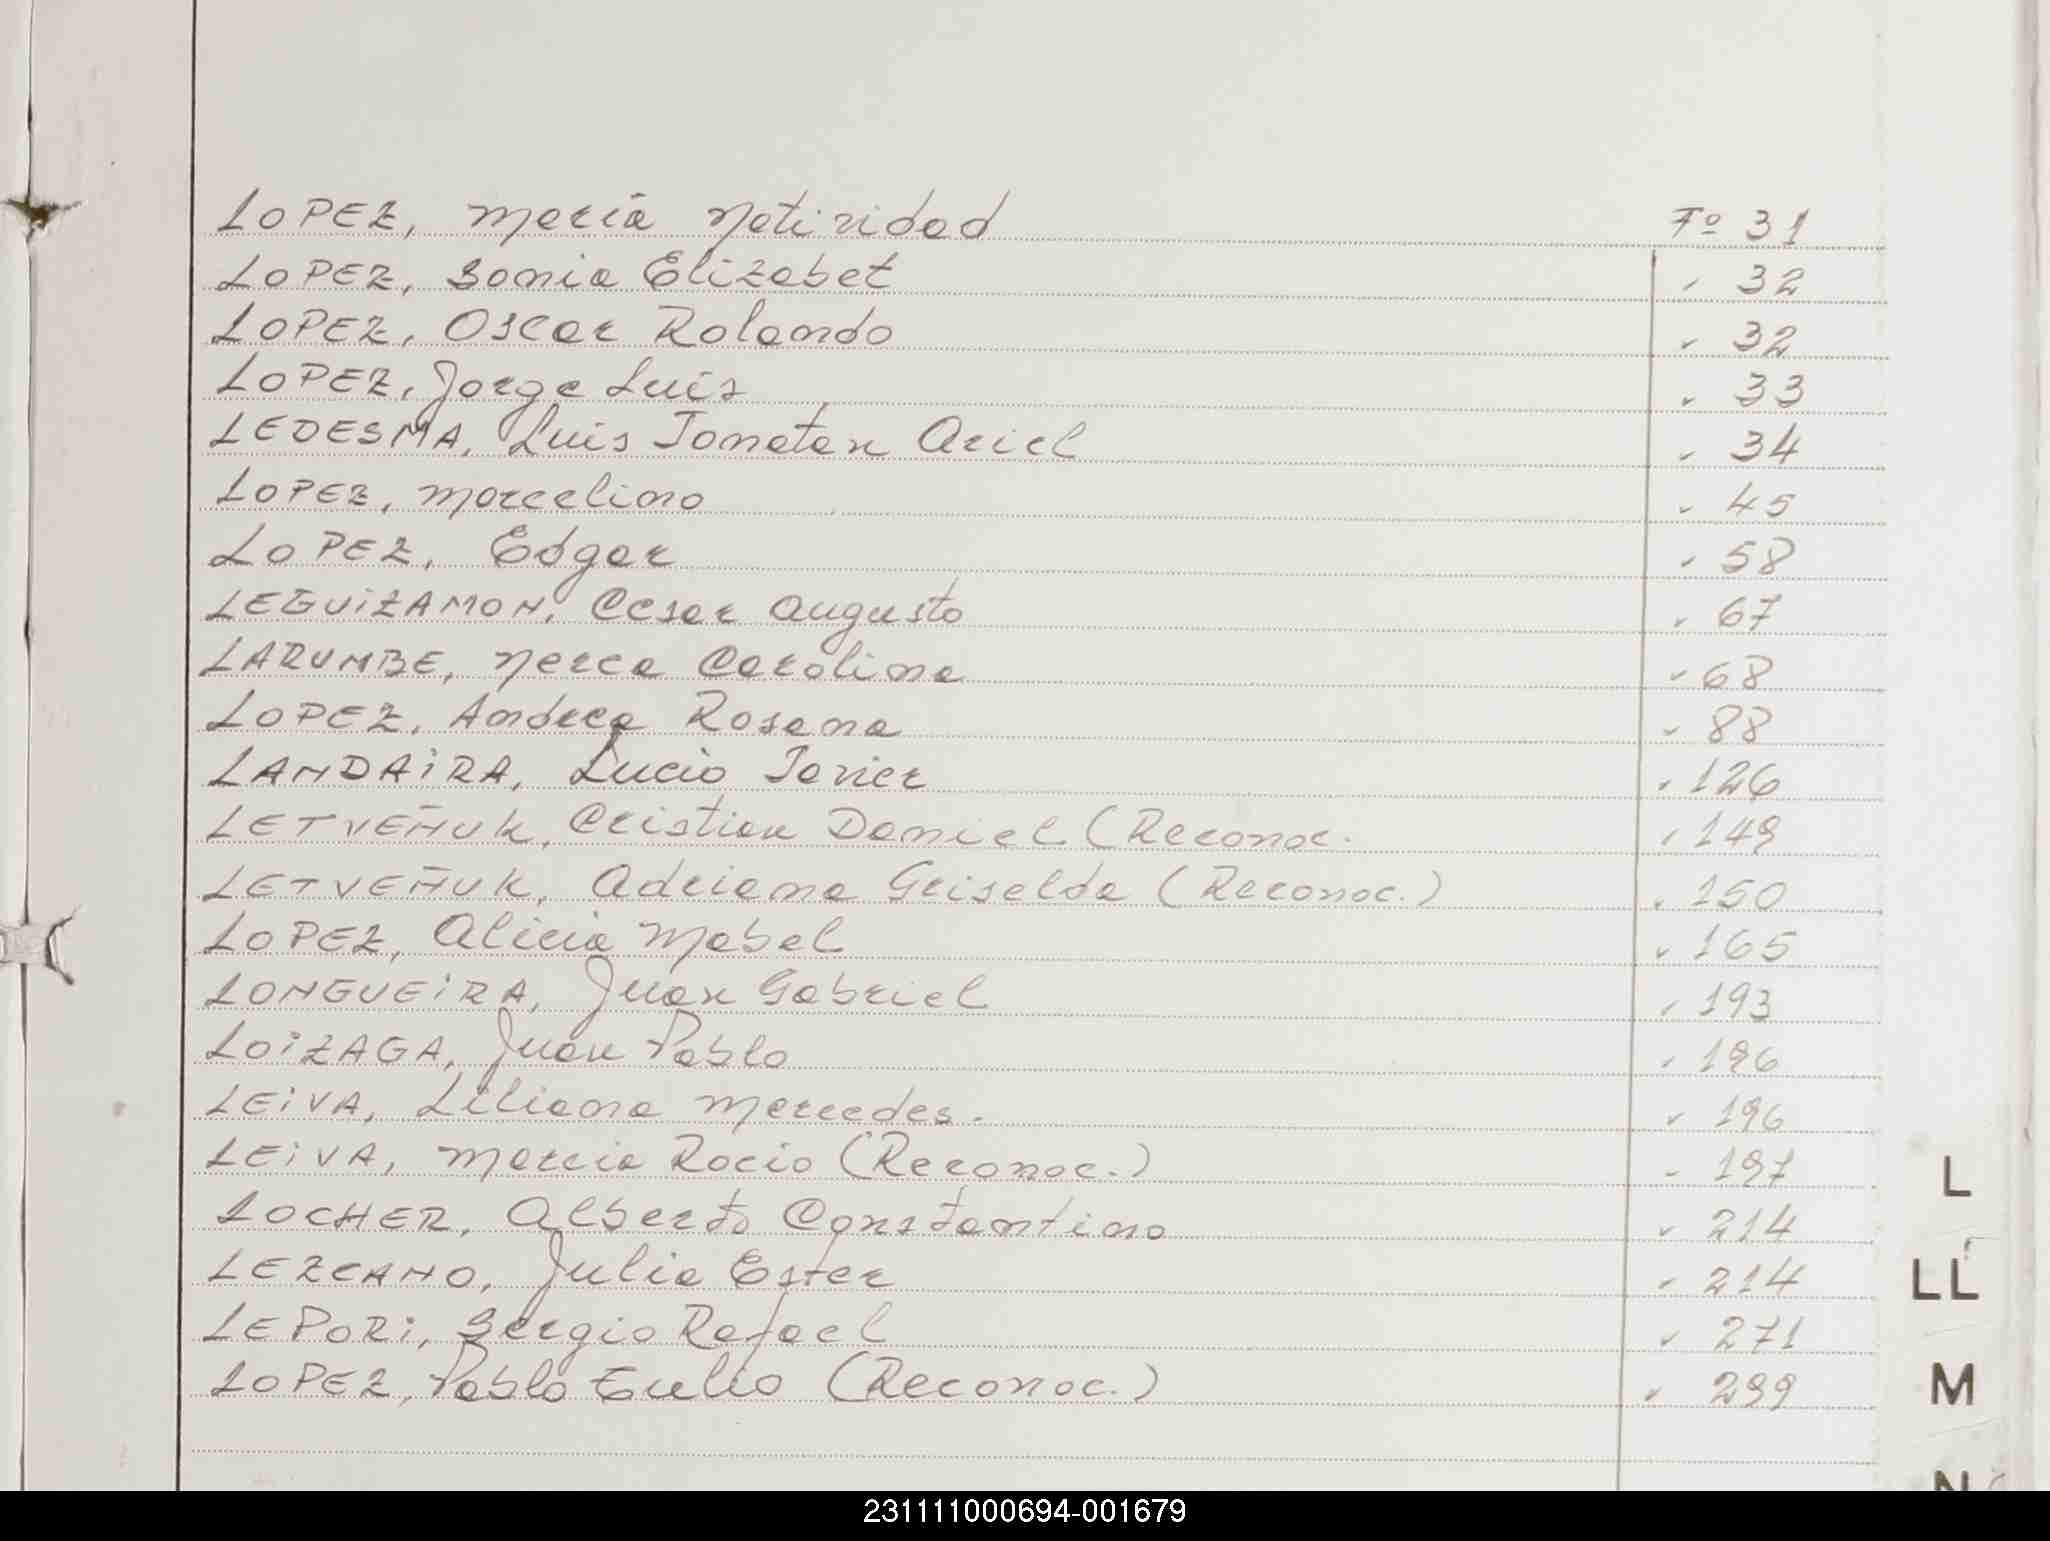 LOPEZ, Maria Natividad Fº 31
LOPEZ, Sonia Elizabet " 32
LOPEZ, Oscar Rolando " 32
LOPEZ, Jorge Luis " 33
LEDESMA, Luis Jonatan Ariel " 34
LOPEZ, Marcelino " 45
LOPEZ, Edgar " 58
LEGUiZAMON, Cesar Augusto " 67
LARUMBE, Nerea Carolina " 68
LOPEZ, Andrea Rosana " 88
LANDAiRA, Lucio Javier " 126
LETVEÑUK, Cristian Daniel (Reconoc. " 149
LETVEÑUK, Adriana Griselda (Reconoc.) " 150
LOPEZ, Alicia Mabel " 165
LONGUEiRA, Juan Gabriel " 193
LOiZAGA, Juan Pablo " 196
LEiVA, Liliana Mercedes. " 196
LEiVA, Marcia Rocio (Reconoc.) " 197
LOCHER, Alberto Constantino " 214
LEZCANO, Julia Ester " 214
LEPORi, Sergio Rafael " 271
LOPEZ, Pablo (Reconoc.) " 299
L
LL
M
N
231111000694-001679